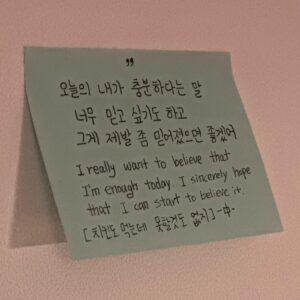 "
오늘의 내가 충분하다는 말
너무 믿고 싶기도 하고
그게 제발 좀 믿어졌으면 좋겠어
I really want to believe that
I'm enough today. I sincerely hope
that I can start to believe it.
[치킨도 먹는데 못할것도 없지] -中-